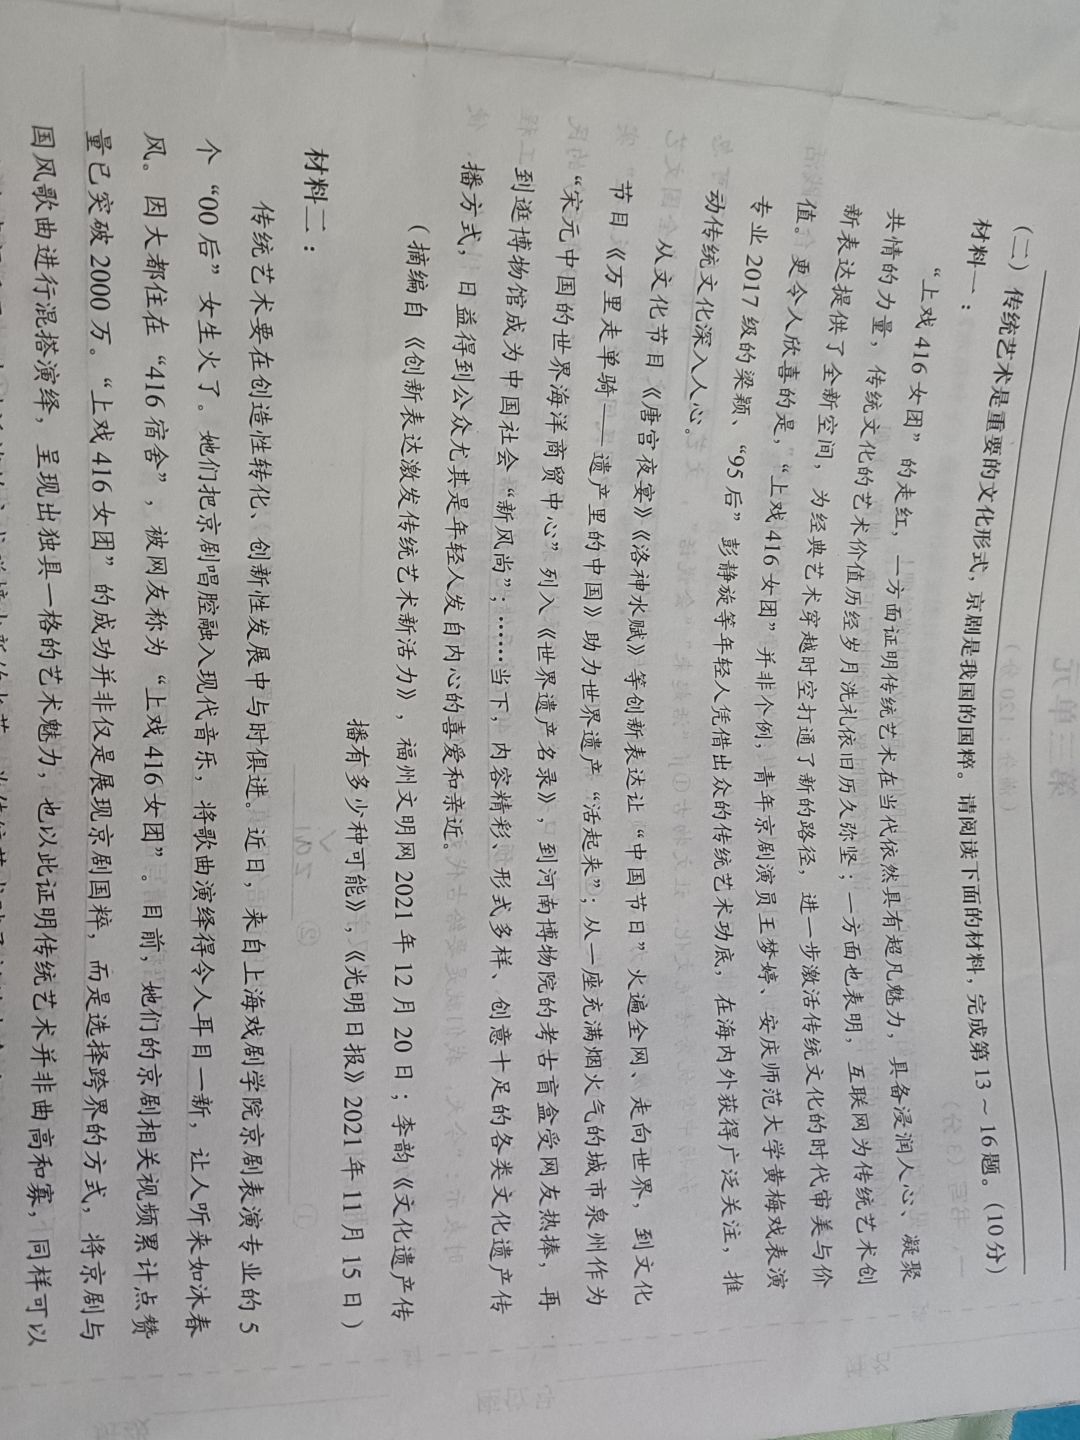 （二）传统艺术是重要的文化形式，京剧是我国的国粹。请阅读下面的材料，完成第13～16题。（10分）
材料一：
“上戏416女团”的走红，一方面证明传统艺术在当代依然具有超凡魅力，具备浸润人心、凝聚
共情的力量，传统文化的艺术价值历经岁月洗礼依旧历久弥坚；一方面也表明，互联网为传统艺术创
新表达提供了全新空间，为经典艺术穿越时空打通了新的路径，进一步激活传统文化的时代审美与价
值。更令人欣喜的是，“上戏416女团”并非个例，青年京剧演员王梦婷、安庆师范大学黄梅戏表演
专业2017级的梁颖、“95后”彭静旋等年轻人凭借出众的传统艺术功底，在海内外获得广泛关注，推
动传统文化深入人心。
从文化节目《唐宫夜宴》《洛神水赋》等创新表达让“中国节日”火遍全网、走向世界，到文化
节目《万里走单骑——遗产里的中国》助力世界遗产“活起来”；从一座充满烟火气的城市泉州作为
“宋元中国的世界海洋商贸中心”列入《世界遗产名录》，到河南博物院的考古盲盒受网友热捧，再
到逛博物馆成为中国社会“新风尚”；……当下，内容精彩、形式多样、创意十足的各类文化遗产传
播方式，日益得到公众尤其是年轻人发自内心的喜爱和亲近。
（摘编自《创新表达激发传统艺术新活力》，福州文明网2021年12月20日；李韵《文化遗产传
播有多少种可能》，《光明日报》2021年11月15日）
材料二：
传统艺术要在创造性转化、创新性发展中与时俱进。近日，来自上海戏剧学院京剧表演专业的5
个“00后”女生火了。她们把京剧唱腔融入现代音乐，将歌曲演绎得令人耳目一新，让人听来如沐春
风。因大都住在“416宿舍”，被网友称为“上戏416女团”。目前，她们的京剧相关视频累计点赞
量已突破2000万。“上戏416女团”的成功并非仅是展现京剧国粹，而是选择跨界的方式，将京剧与
国风歌曲进行混搭演绎，呈现出独具一格的艺术魅力，也以此证明传统艺术并非曲高和寡，同样可以